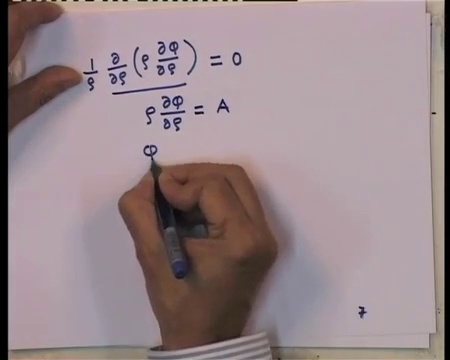 1/ρ ∂/∂ρ (ρ ∂φ/∂ρ) = 0
ρ ∂φ/∂ρ = A
φ
7